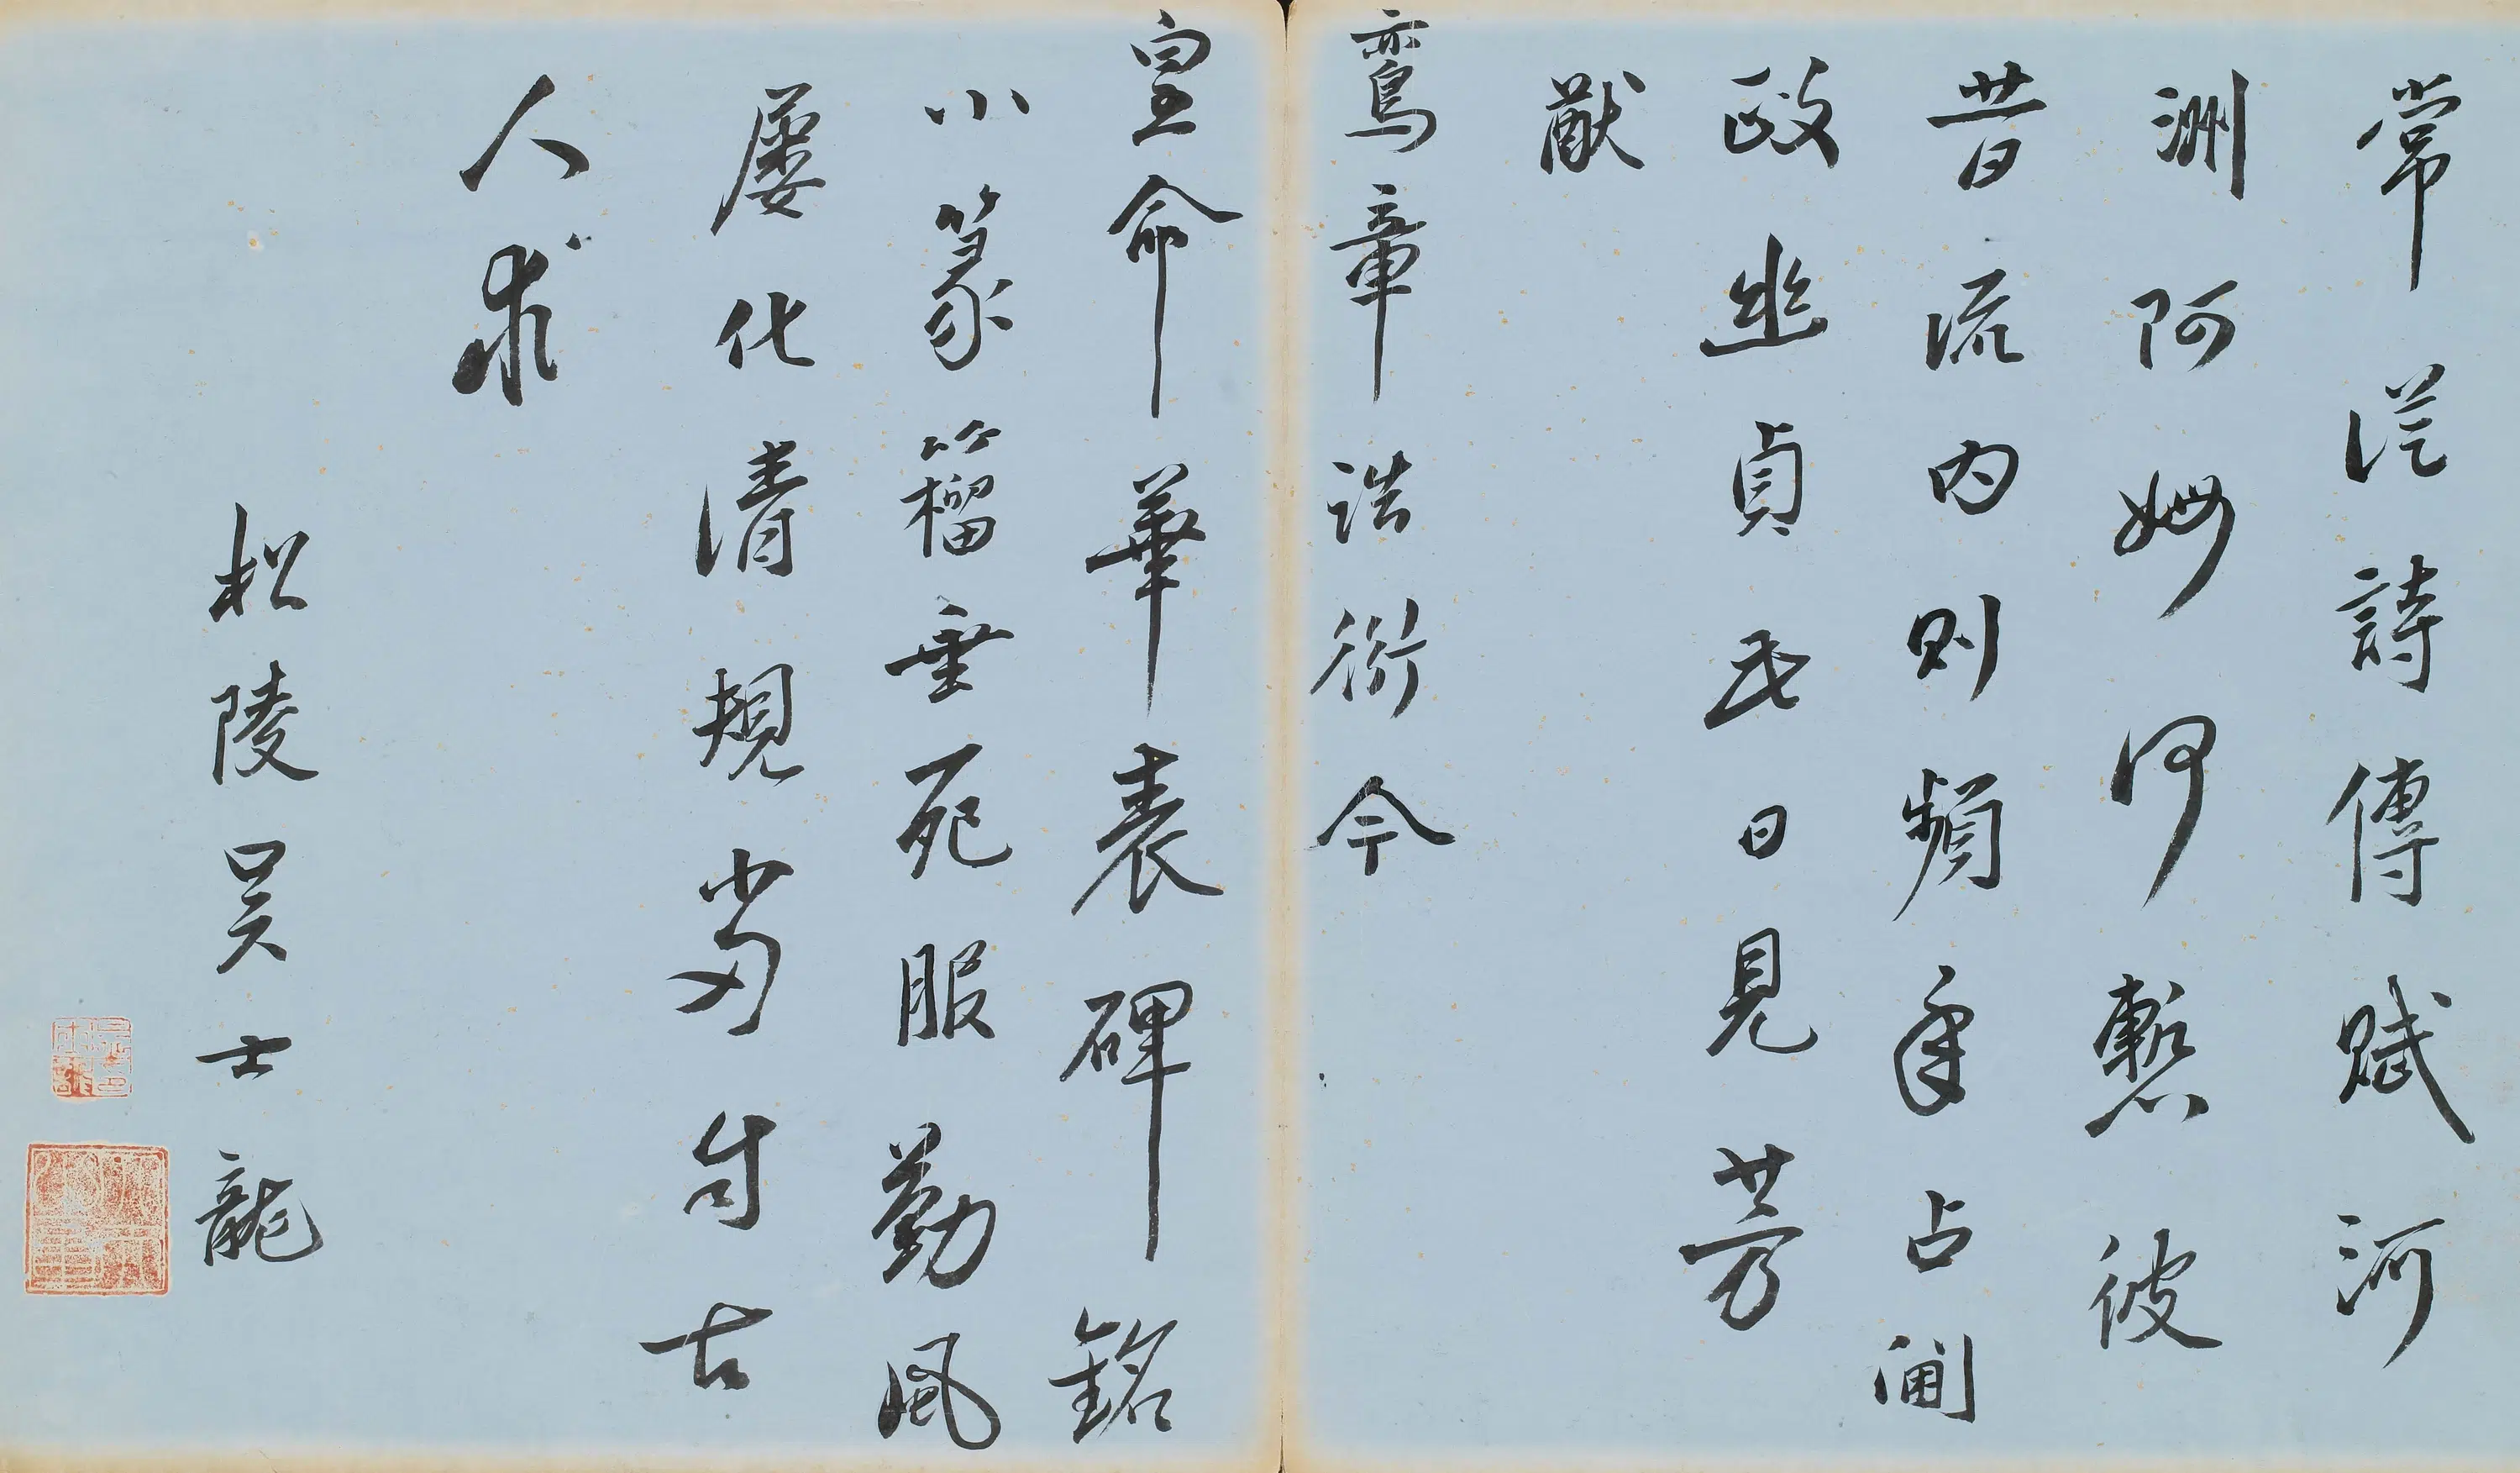 常從詩傳賦河
洲阿姆何慙彼
昔流内則頻年占閫
政幽貞氏日見芳
猷
鸞章誥衍今
皇命華表碑銘
小篆籀垂死服勤風
屢化清規當付古
人求
松陵吳士龍